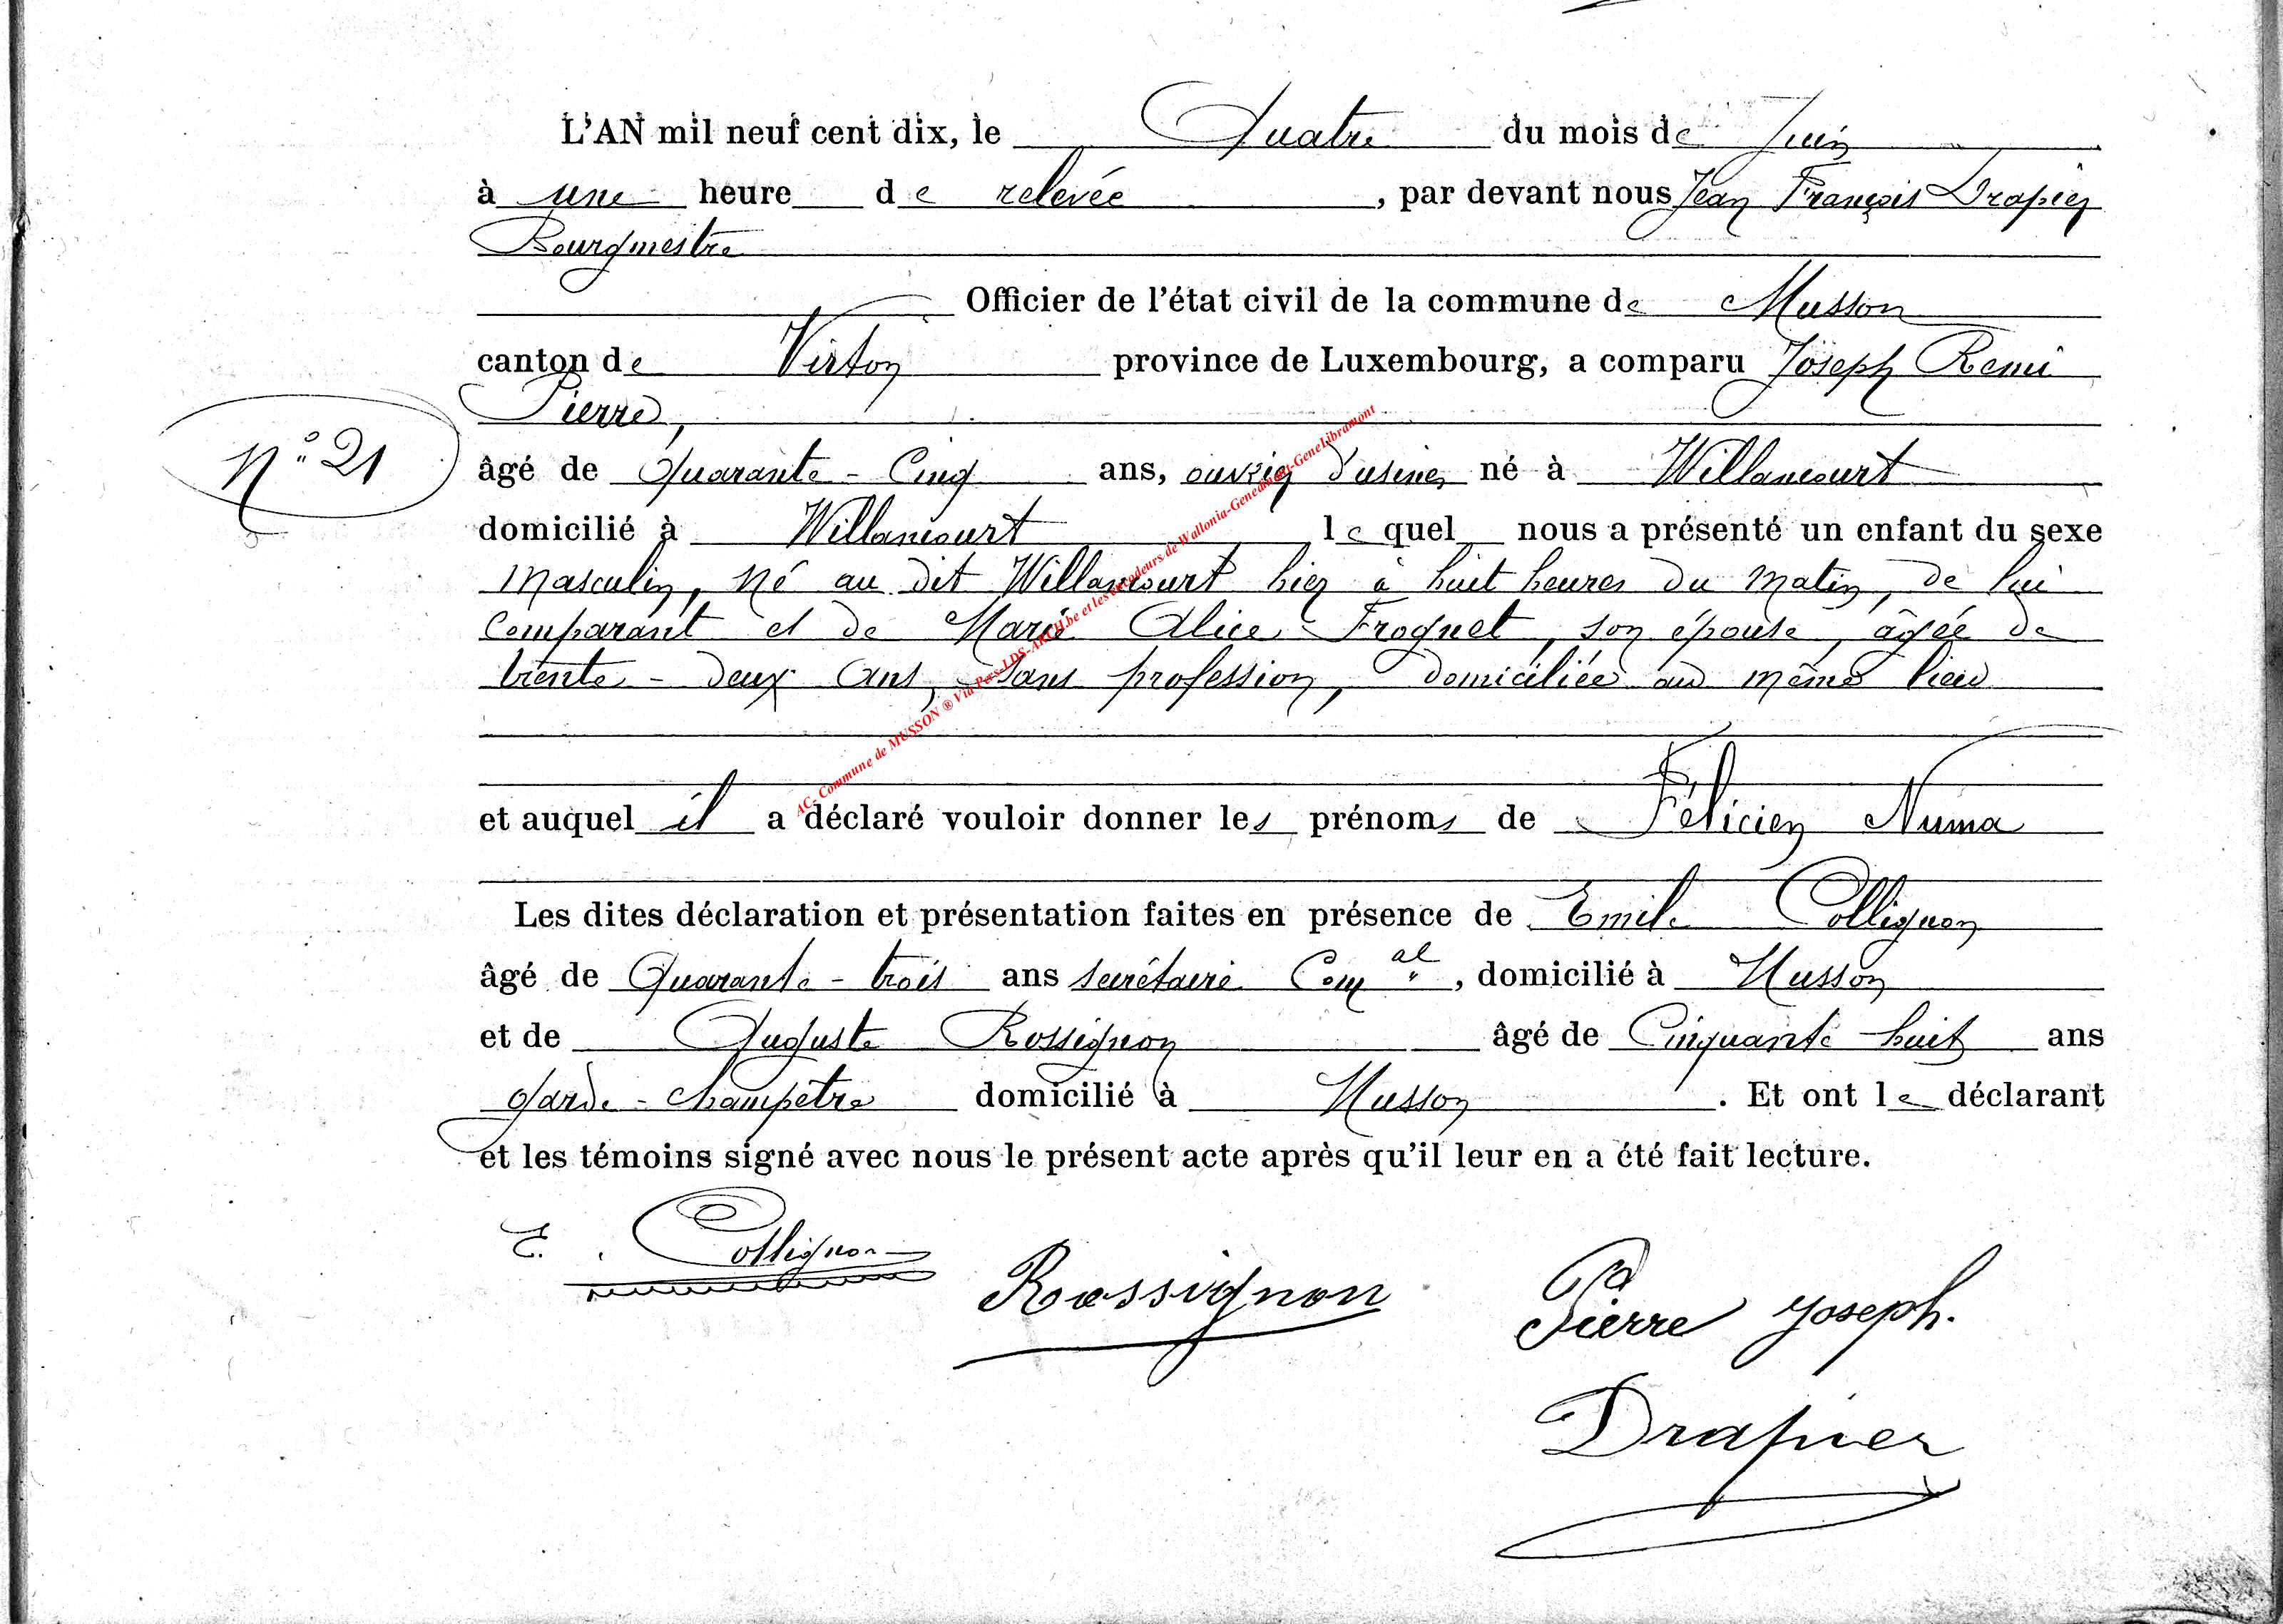 L'AN mil neuf cent dix, le Quatre du mois de Juin
à une heure de relevée, par devant nous Jean François Drapier
Bourgmestre
Officier de l'état civil de la commune de Musson
canton de Virton province de Luxembourg, a comparu Joseph Remi
Pierre,
N° 21
âgé de Quarante-Cinq ans, ouvrier d'usines né à Willancourt
domicilié à Willancourt lequel nous a présenté un enfant du sexe
masculin, né au dit Willancourt hier à huit heures du matin, de lui
comparant et de Marie Alice Froguet, son épouse, âgée de
trente-deux ans, sans profession, domiciliée au même lieu
et auquel il a déclaré vouloir donner les prénoms de Félicien Numa
Les dites déclaration et présentation faites en présence de Emile Collignon
âgé de Quarante-trois ans secrétaire Com al, domicilié à Musson
et de Auguste Rossignon âgé de Cinquante-huit ans
garde-champêtre domicilié à Musson. Et ont le déclarant
et les témoins signé avec nous le présent acte après qu'il leur en a été fait lecture.
E. Collignon
Rossignon
Pierre Joseph.
Drapier
AC- Commune de MUSSON ® Via Pers-LDS-ARCH.be et les encodeurs de Wallonia-Genedinant-GeneLibramont